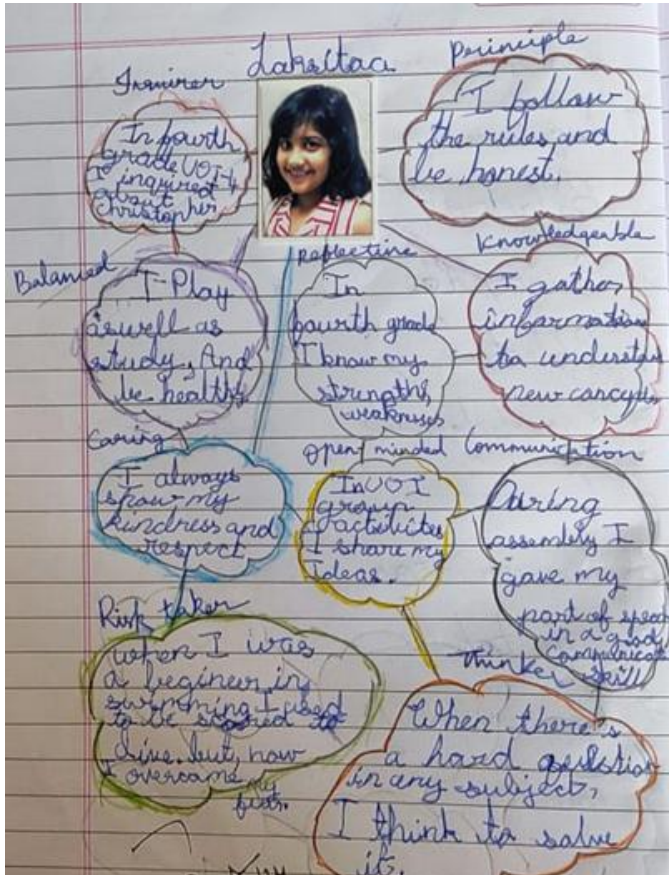 Laksitaa
Inuirer
In fourth
grade UOI,
I inquired
about
Christopher
Principle
I follow
the rules and
be honest.
Balanced
I Play
aswell as
study, And
be healthy
Reflective
In
fourth grade
I know my
strengths,
weaknesses
Knowledgeable
I gather
information
to understand
new concepts
Caring
I always
show my
kindness and
respect
Open minded
In UOI
group
activities
I share my
Ideas.
Communication
During
assembly I
gave my
part of speech
in a good
communication
skill
Risk taker
when I was
a beginer in
swimming I used
to be scared to
dive. but, now
I overcame my
fear.
Thinker
When there's
a hard question
in any subject,
I think to solve
it.